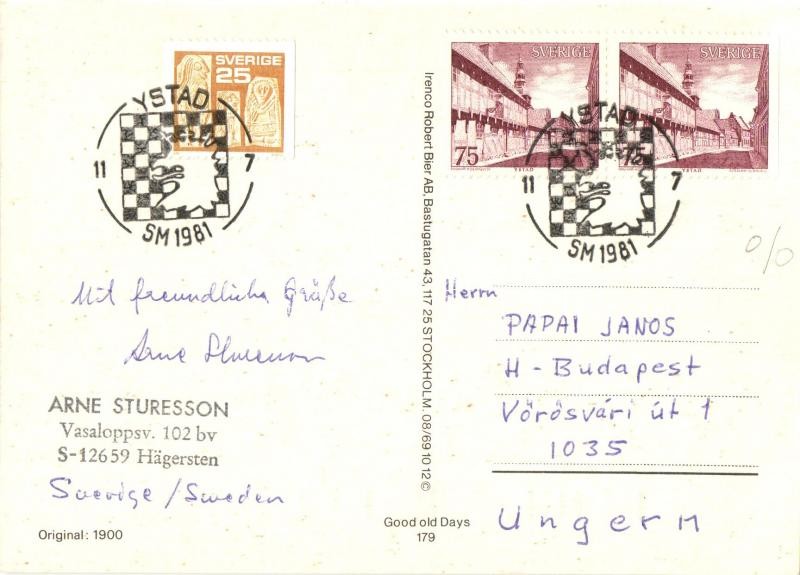 SVERIGE
25
YSTAD
11 7
SM 1981
SVERIGE
75
YSTAD
SVERIGE
75
YSTAD
YSTAD
11 7
SM 1981
Mit freundliche Grüße
Arne Sturesson
ARNE STURESSON
Vasaloppsv. 102 bv
S-12659 Hägersten
Sverige / Sweden
Original: 1900
Irenco Robert Bier AB, Bastugatan 43, 117 25 STOCKHOLM. 08/69 10 12 ©
Good old Days
179
o/o
Herrn
PAPAI JANOS
H - Budapest
Vörösvári út 1
1035
Ungern